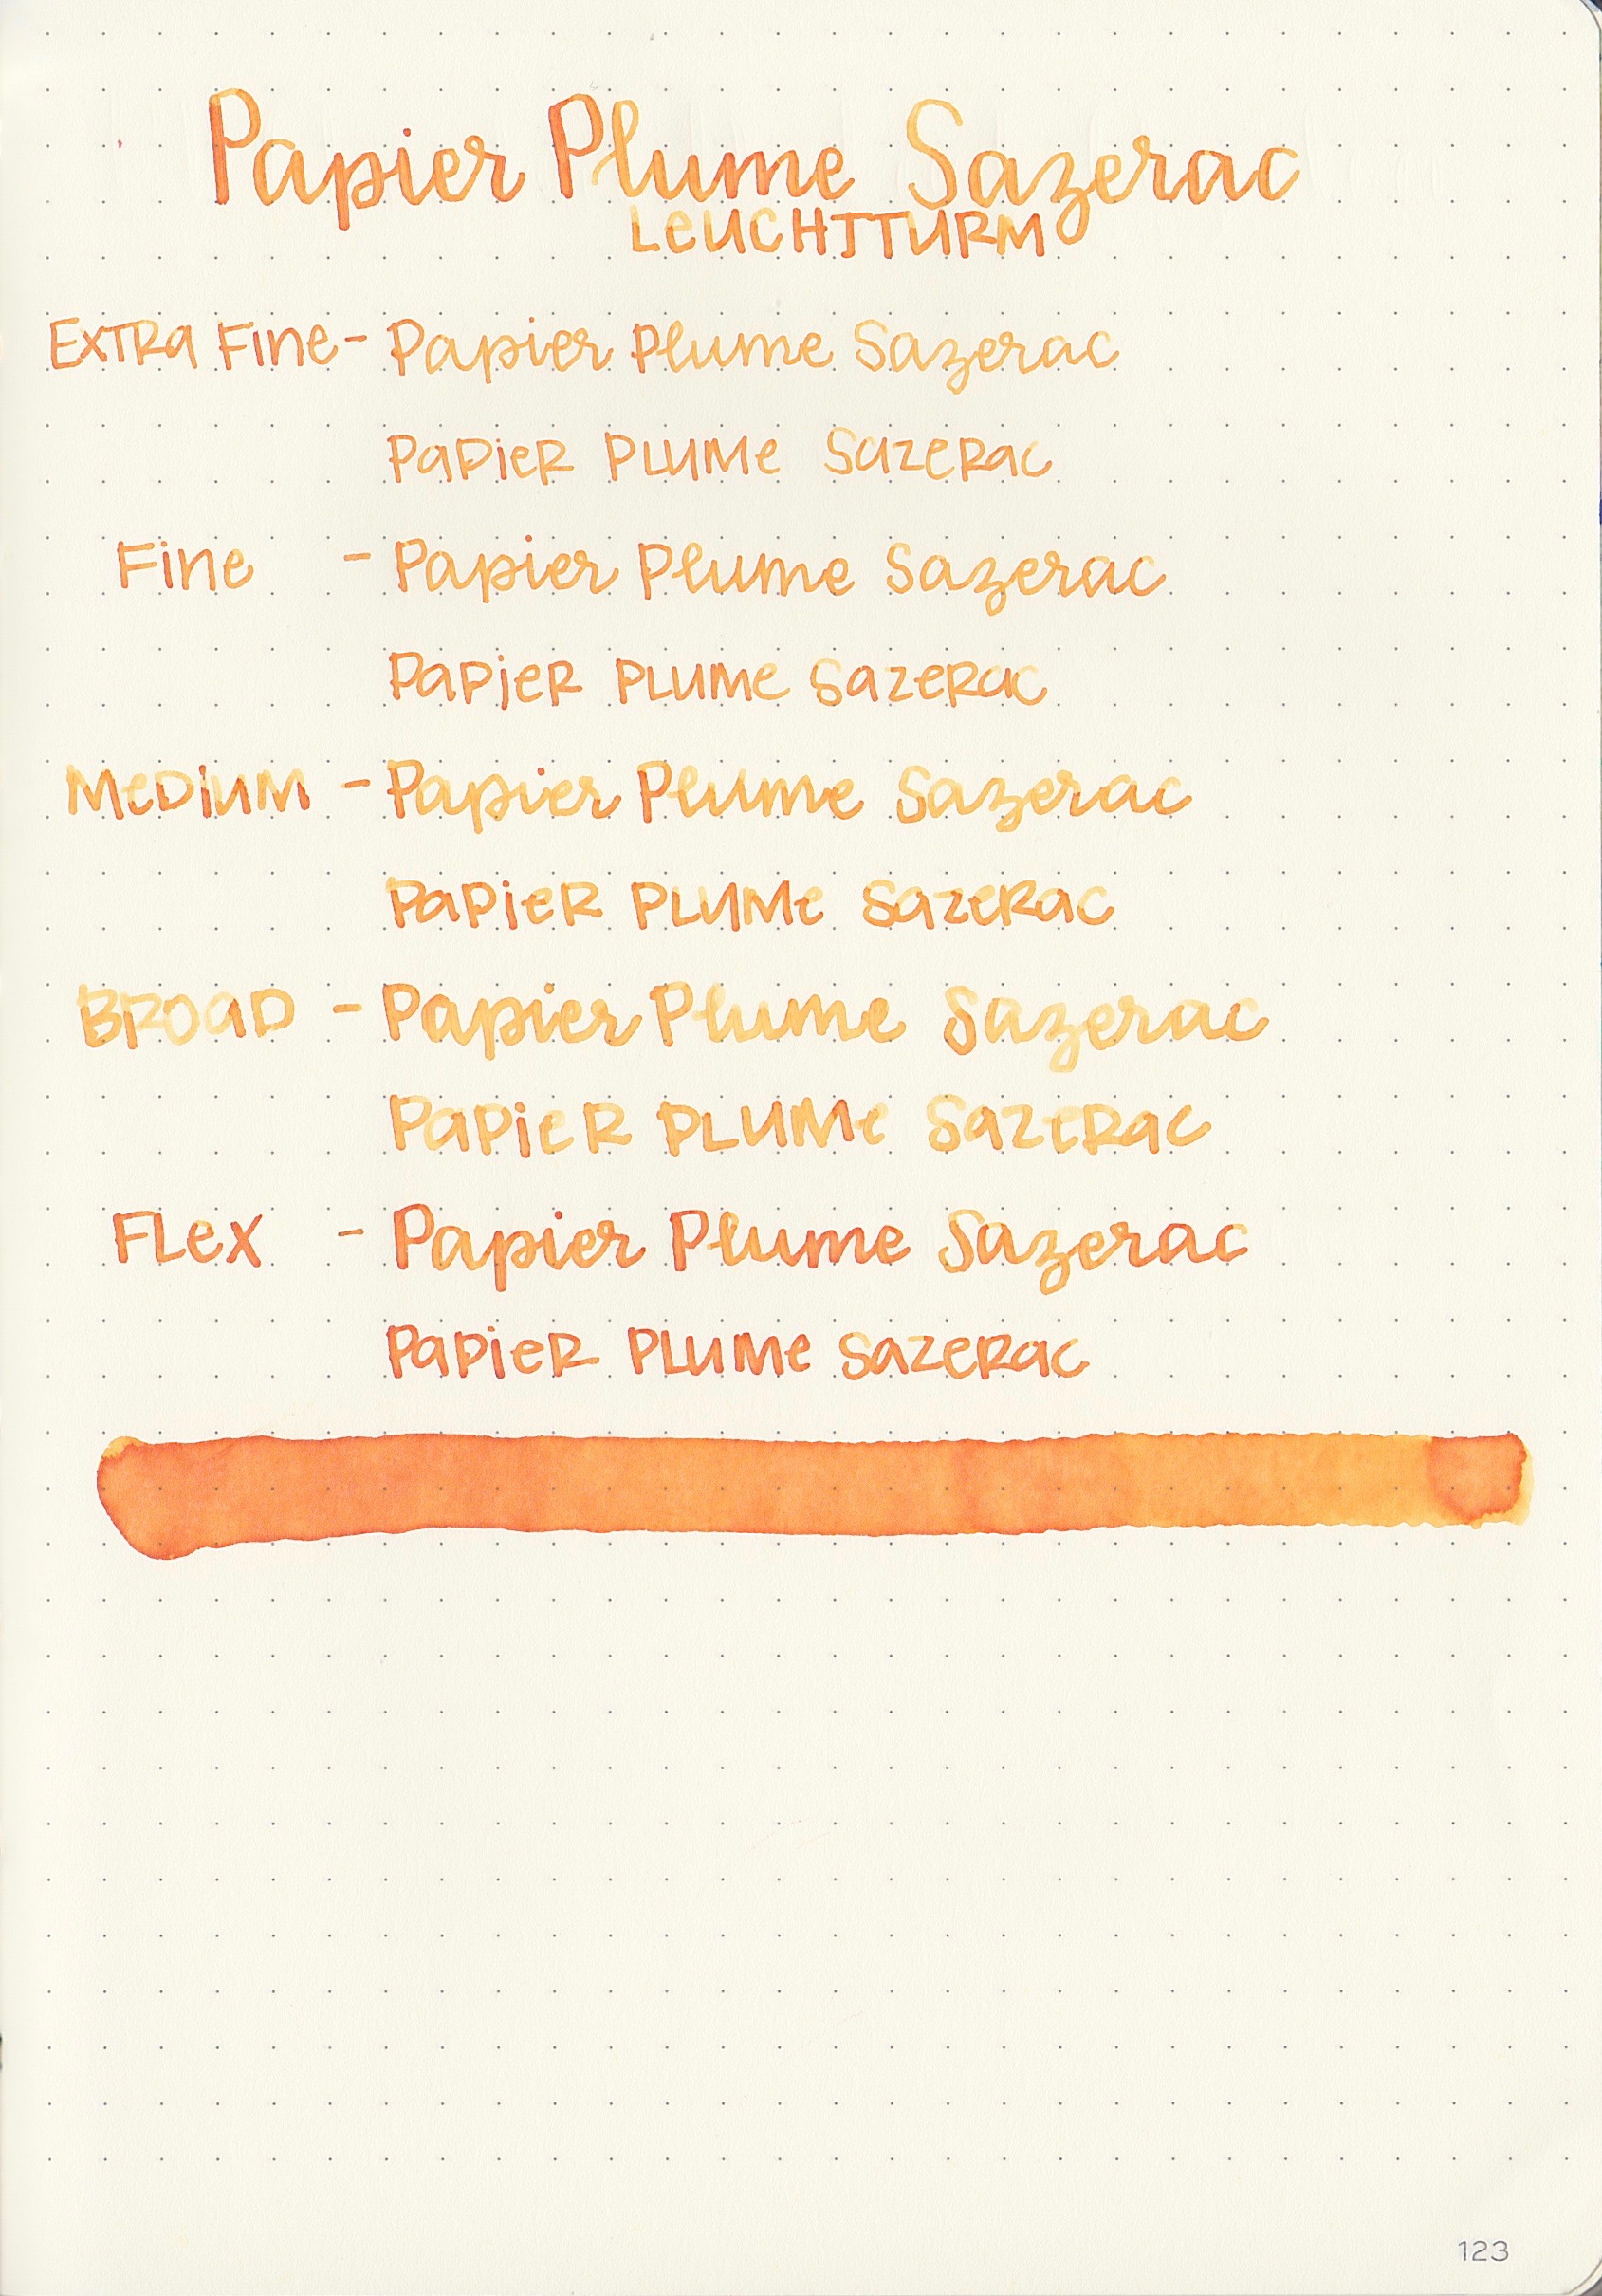 Papier Plume Sazerac
LEUCHTTURM
Extra Fine - Papier Plume Sazerac
Papier Plume Sazerac
Fine - Papier Plume Sazerac
Papier Plume Sazerac
Medium - Papier Plume Sazerac
Papier Plume Sazerac
Broad - Papier Plume Sazerac
Papier Plume Sazerac
Flex - Papier Plume Sazerac
Papier Plume Sazerac
123